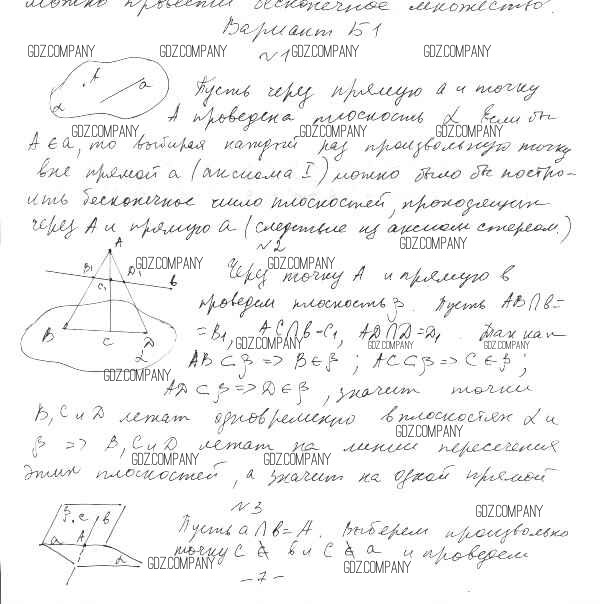 можно провести бесконечное множество.
Вариант Б1
GDZ.COMPANY GDZ.COMPANY GDZ.COMPANY GDZ.COMPANY
№1
A a α
Пусть через прямую a и точку
A проведена плоскость α. Если бы
GDZ.COMPANY GDZ.COMPANY GDZ.COMPANY
A ∈ a, то выбирая каждый раз произвольную точку
вне прямой a (аксиома I) можно было бы постро-
ить бесконечное число плоскостей, проходящих
через A и прямую a (следствие из аксиом стереом.)
№2 GDZ.COMPANY
A B1 C1 D1 b B C D α
GDZ.COMPANY GDZ.COMPANY
Через точку A и прямую b
проведем плоскость β. Пусть AB∩b=
=B1, AC∩b=C1, AD∩D=D1. Так как
GDZ.COMPANY GDZ.COMPANY GDZ.COMPANY
AB⊂β => B∈β ; AC⊂β => C∈β ;
GDZ.COMPANY
AD⊂β => D∈β, значит точки
B, C и D лежат одновременно в плоскостях α и
GDZ.COMPANY
β => B, C и D лежат на линии пересечения
GDZ.COMPANY GDZ.COMPANY
этих плоскостей, а значит на одной прямой
№3 GDZ.COMPANY
β c b a A α
Пусть a∩b=A. Выберем произвольно
точку C ∉ b и C ∉ a и проведем
GDZ.COMPANY GDZ.COMPANY
- 7 -